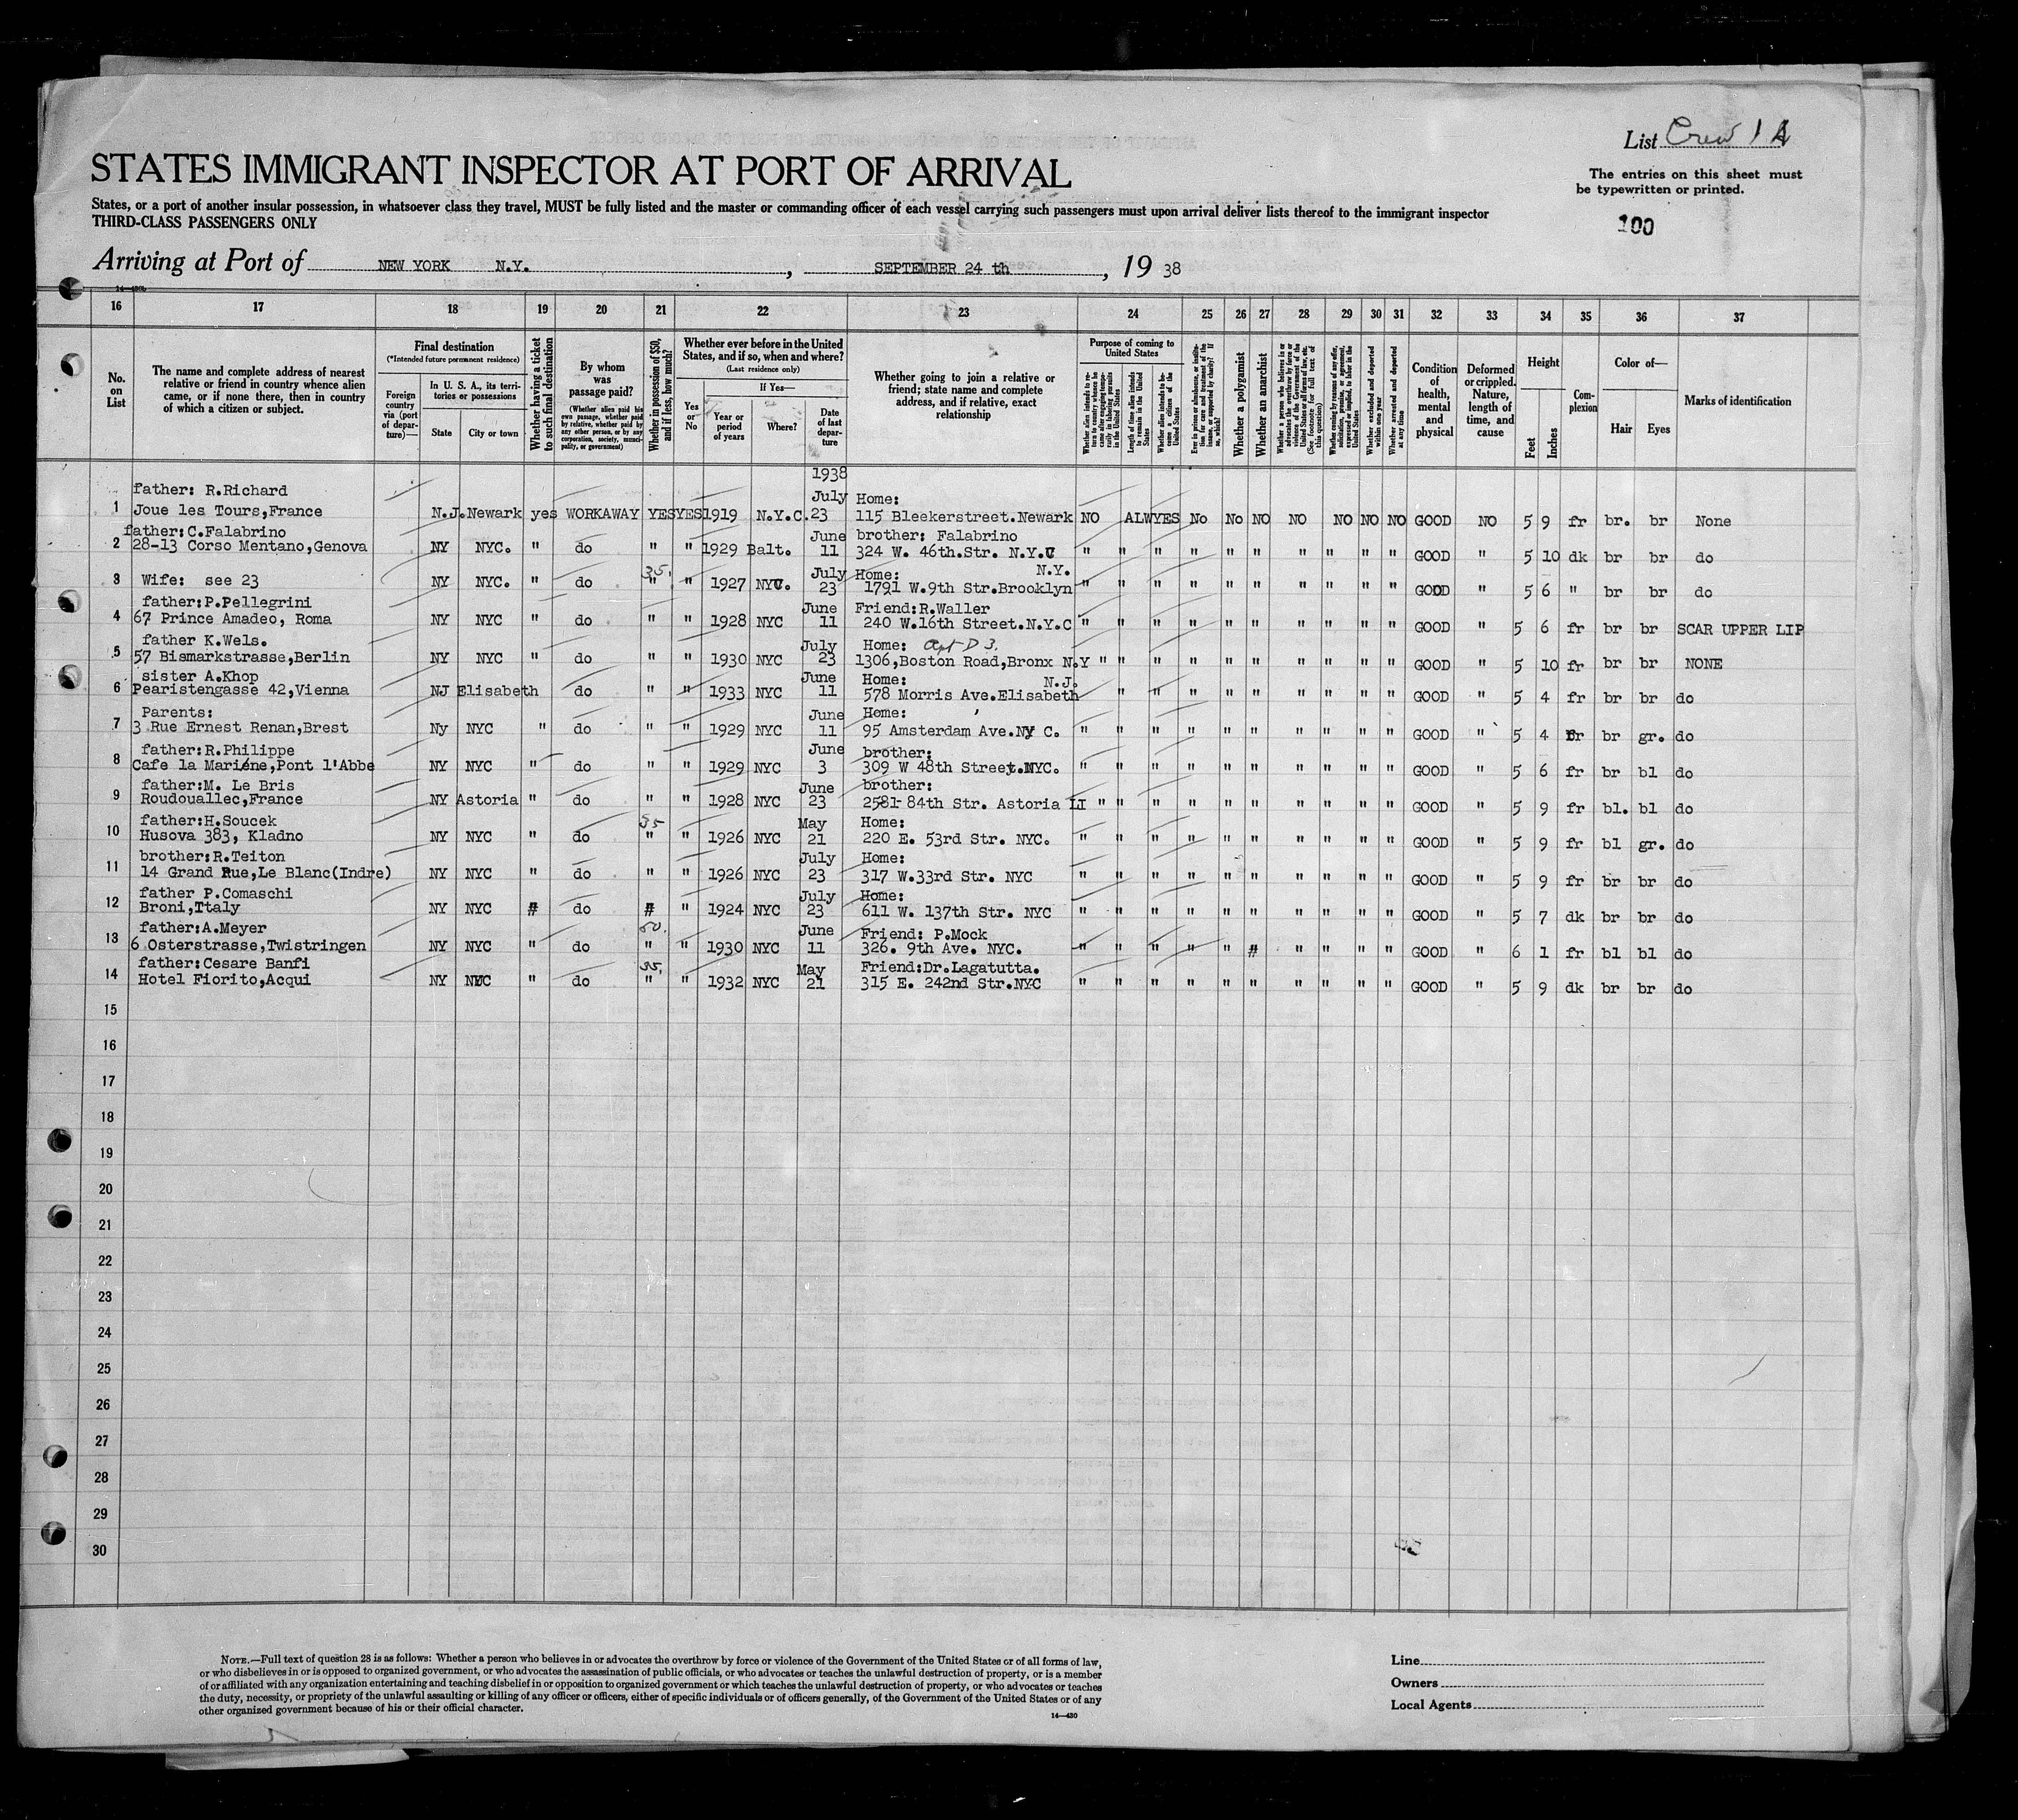 List Crew 1 A
STATES IMMIGRANT INSPECTOR AT PORT OF ARRIVAL
The entries on this sheet must
be typewritten or printed.
States, or a port of another insular possession, in whatsoever class they travel, MUST be fully listed and the master or commanding officer of each vessel carrying such passengers must upon arrival deliver lists thereof to the immigrant inspector
THIRD-CLASS PASSENGERS ONLY
100
Arriving at Port of NEW YORK N.Y. , SEPTEMBER 24 th , 19 38
16 17 18 19 20 21 22 23 24 25 26 27 28 29 30 31 32 33 34 35 36 37
No. on List
The name and complete address of nearest relative or friend in country whence alien came, or if none there, then in country of which a citizen or subject.
Final destination
(*Intended future permanent residence)
Foreign country via (port of departure)—
In U. S. A., its territories or possessions
State
City or town
Whether having a ticket to such final destination
By whom was passage paid?
(Whether alien paid his own passage, whether paid by relative, whether paid by any other person, or by any corporation, society, municipality, or government)
Whether in possession of $50, and if less, how much?
Whether ever before in the United States, and if so, when and where?
(Last residence only)
Yes or No
If Yes—
Year or period of years
Where?
Date of last departure
Whether going to join a relative or friend; state name and complete address, and if relative, exact relationship
Purpose of coming to United States
Length of time alien intends to remain in the United States
Whether alien intends to become a citizen of the United States
Whether a polygamist
Whether an anarchist
Whether excluded and deported within one year
Whether arrested and deported at any time
Condition of health, mental and physical
Deformed or crippled. Nature, length of time, and cause
Height
Feet
Inches
Complexion
Color of—
Hair
Eyes
Marks of identification
1938
father: R.Richard July Home:
1 Joue les Tours,France N.J. Newark yes WORKAWAY YES YES 1919 N.Y.C. 23 115 Bleekerstreet.Newark NO ALW YES No No NO NO NO NO NO GOOD NO 5 9 fr br. br None
father:C.Falabrino June brother: Falabrino
2 28-13 Corso Mentano,Genova NY NYC. " do " " 1929 Balt. 11 324 W. 46th.Str. N.Y.C " " " " " " " " " " GOOD " 5 10 dk br br do
35. July Home: N.Y.
3 Wife: see 23 NY NYC. " do " " 1927 NYC. 23 1791 W.9th Str.Brooklyn " " " " " " " " " " GOOD " 5 6 " br br do
father:P.Pellegrini June Friend:R.Waller
4 67 Prince Amadeo, Roma NY NYC " do " " 1928 NYC 11 240 W.16th Street.N.Y.C " " " " " " " " " " GOOD " 5 6 fr br br SCAR UPPER LIP
father K.Wels. July Home: Apt D 3.
5 57 Bismarkstrasse,Berlin NY NYC " do " " 1930 NYC 23 1306,Boston Road,Bronx N.Y " " " " " " " " " " GOOD " 5 10 fr br br NONE
sister A.Khop June Home: N.J.
6 Pearistengasse 42,Vienna NJ Elisabeth do " " 1933 NYC 11 578 Morris Ave.Elisabeth " " " " " " " " " GOOD " 5 4 fr br br do
Parents: June Home:
7 3 Rue Ernest Renan,Brest Ny NYC " do " " 1929 NYC 11 95 Amsterdam Ave.NY C. " " " " " " " " " " GOOD " 5 4 fr br gr. do
father:R.Philippe June brother:
8 Cafe la Mariéne,Pont l'Abbe NY NYC " do " " 1929 NYC 3 309 W 48th Street.NYC. " " " " " " " " " " GOOD " 5 6 fr br bl do
father:M. Le Bris June brother:
9 Roudouallec,France NY Astoria " do " " 1928 NYC 23 2581 84th Str. Astoria LI " " " " " " " " " " GOOD " 5 9 fr bl. bl do
father:H.Soucek 35 May Home:
10 Husova 383, Kladno NY NYC " do " " 1926 NYC 21 220 E. 53rd Str. NYC. " " " " " " " " " " GOOD " 5 9 fr bl gr. do
brother:R.Teiton July Home:
11 14 Grand Rue,Le Blanc(Indre) NY NYC " do " " 1926 NYC 23 317 W.33rd Str. NYC " " " " " " " " " " GOOD " 5 9 fr br br do
father P.Comaschi July Home:
12 Broni,Ttaly NY NYC # do # " 1924 NYC 23 611 W. 137th Str. NYC " " " " " " " " " " GOOD " 5 7 dk br br do
father:A.Meyer 50. June Friend: P.Mock
13 6 Osterstrasse,Twistringen NY NYC " do " " 1930 NYC 11 326. 9th Ave. NYC. " " " " " # " " " " GOOD " 6 1 fr bl bl do
father:Cesare Banfi 35. May Friend:Dr.Lagatutta.
14 Hotel Fiorito,Acqui NY NYC " do " " 1932 NYC 21 315 E. 242nd Str.NYC " " " " " " " " " " GOOD " 5 9 dk br br do
15
16
17
18
19
20
21
22
23
24
25
26
27
28
29
30
NOTE.—Full text of question 28 is as follows: Whether a person who believes in or advocates the overthrow by force or violence of the Government of the United States or of all forms of law,
or who disbelieves in or is opposed to organized government, or who advocates the assassination of public officials, or who advocates or teaches the unlawful destruction of property, or is a member
of or affiliated with any organization entertaining and teaching disbelief in or opposition to organized government or which teaches the unlawful destruction of property, or who advocates or teaches
the duty, necessity, or propriety of the unlawful assaulting or killing of any officer or officers, either of specific individuals or of officers generally, of the Government of the United States or of any
other organized government because of his or their official character.
14—430
Line
Owners
Local Agents